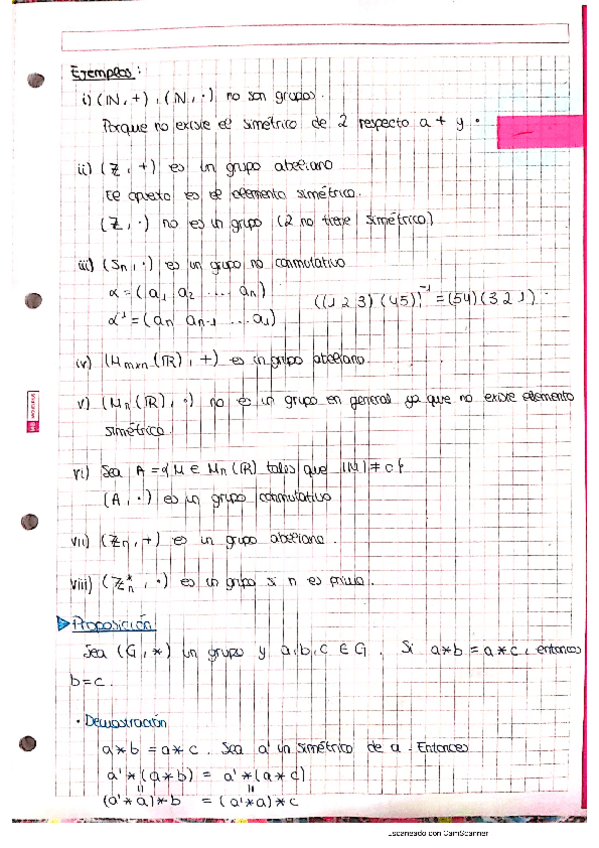 Ejemplos:
i) (N, +), (N, ·) no son grupos.
Porque no existe el simétrico de 2 respecto a + y ·
ii) (Z, +) es un grupo abeliano
El opuesto es el elemento simétrico.
(Z, ·) no es un grupo (2 no tiene simétrico)
iii) (Sn, ·) es un grupo no conmutativo
α = (a₁ a₂ ... an)
((1 2 3)(4 5))⁻¹ = (5 4)(3 2 1).
α⁻¹ = (an an-1 ... a₁)
iv) (Mmxn(R), +) es un grupo abeliano.
v) (Mn(R), ·) no es un grupo en general ya que no existe elemento
simétrico.
vi) Sea A = {M ∈ Mn(R) tales que |M| ≠ 0}
(A, ·) es un grupo conmutativo
vii) (Zn, +) es un grupo abeliano.
viii) (Zn*, ·) es un grupo si n es primo.
Proposición
Sea (G, *) un grupo y a, b, c ∈ G. Si a*b = a*c, entonces
b = c.
· Demostración
a*b = a*c. Sea a' un simétrico de a. Entonces
a' * (a*b) = a' * (a*c)
(a' * a) * b = (a' * a) * c
Escaneado con CamScanner